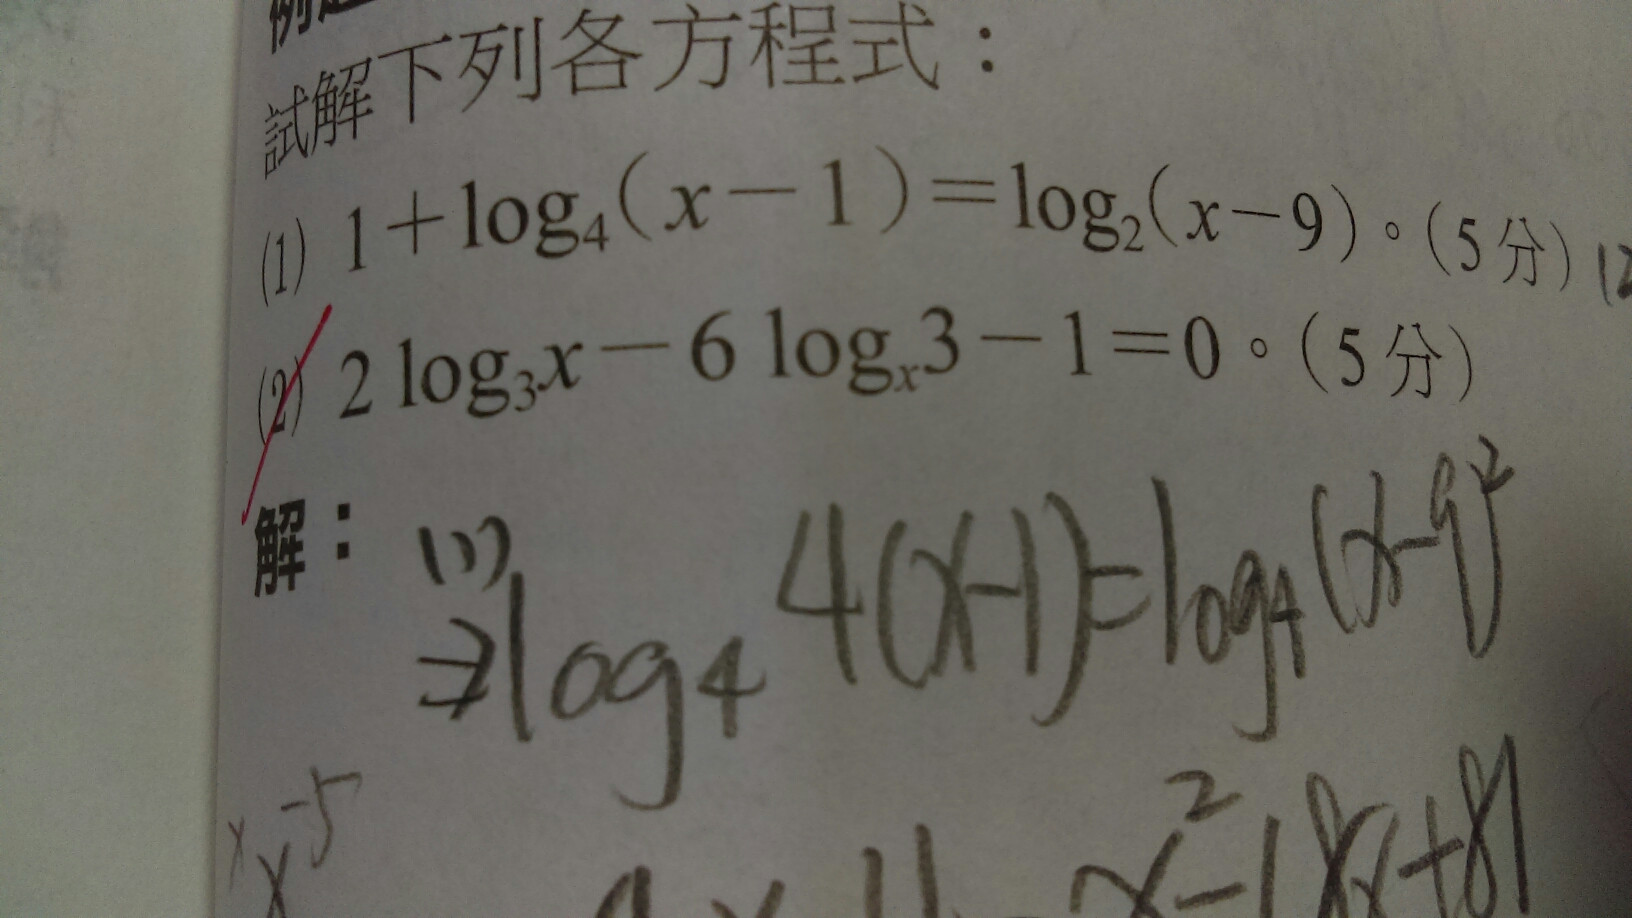 試解下列各方程式：
(1) 1+log₄(x-1)=log₂(x-9)。(5分)
(2) 2 log₃x-6 logₓ3-1=0。(5分)
解：(1)
⇒log₄ 4(x-1)=log₄(x-9)²
x-5
x²-18x+81